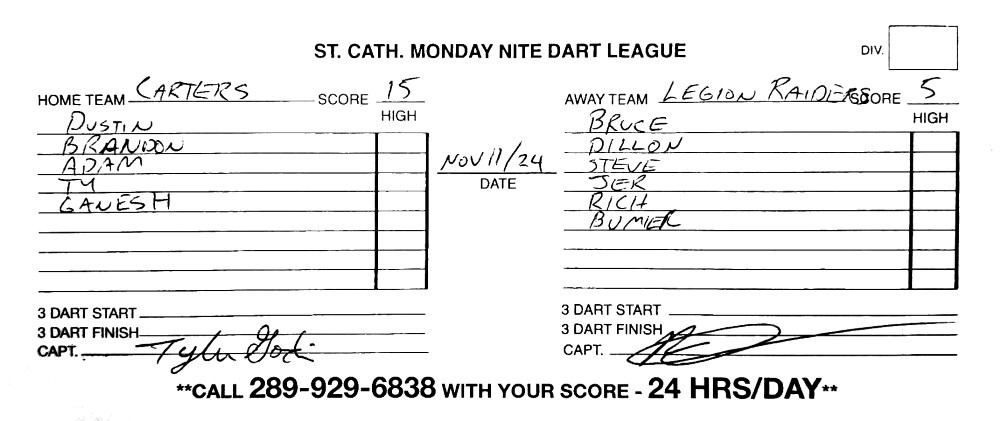 ST. CATH. MONDAY NITE DART LEAGUE
DIV.
HOME TEAM CARTERS SCORE 15
HIGH
DUSTIN
BRANDON
ADAM
TY
GANESH
3 DART START
3 DART FINISH
CAPT. Tyler
NOV 11/24
DATE
AWAY TEAM LEGION RAIDERS SCORE 5
HIGH
BRUCE
DILLON
STEVE
JER
RICH
3 DART START
3 DART FINISH
CAPT.
**CALL 289-929-6838 WITH YOUR SCORE - 24 HRS/DAY**